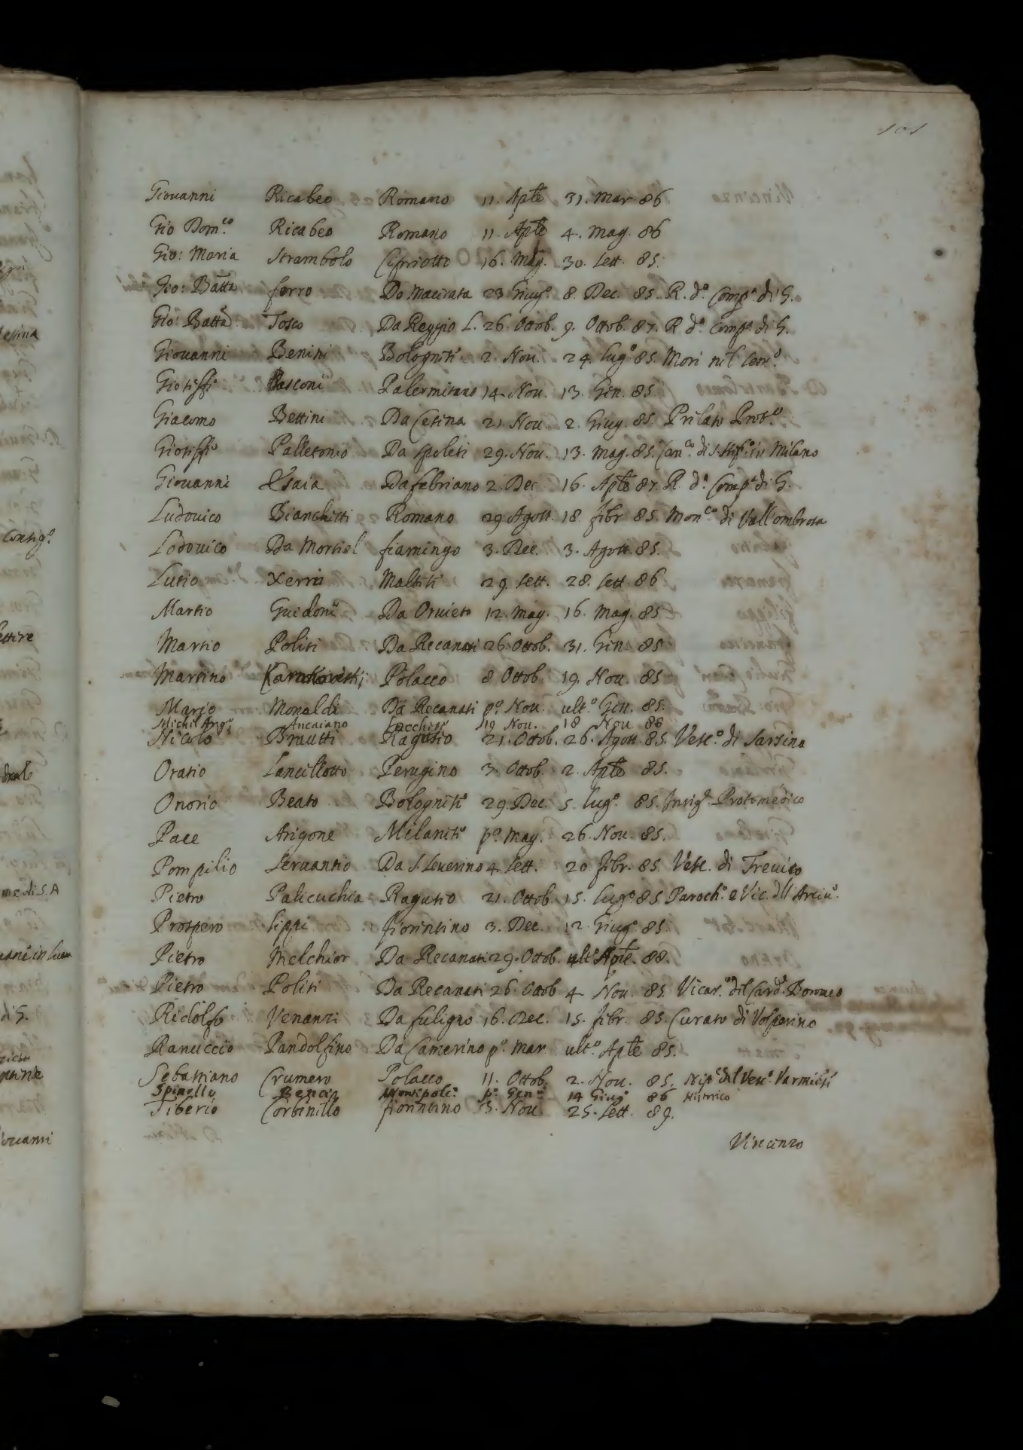 101
Giovanni Ricabeo Romano 11. Aple 31. Mar 86
Gio Dom.co Ricabeo Romano 11. Aple 4. Mag 86
Gio: Maria Strambolo Cipriotto 16. Mag. 30. Sett. 85.
Gio: Batta ferro Da Macerata 23 Giug.o 8 Dec. 85. R. d.a Comp.a di G.
Gio: Batta Tosco Da Reggio L. 26. Ottob. 9. Ottob. 87. R d.a Comp.a di G.
Giovanni Benini Bolognese 2. Nov. 24 lug.o 85. Mori nel
Gioseffo Pasconi Palermitano 14. Nov. 13. Gen. 85.
Giacomo Bettini Da Cesena 21 Nov. 2. Giug. 85. Prelato
Gioseffo Palletonio Da Spoleti 29. Nov. 13. Mag. 85. Can.co di in Milano
Giovanni Esaia Da febriano 2. Dec 16. Aple 87. R d.a Comp.a di G.
Ludovico Bianchetti Romano 29 Agott 18 febr. 85. Mon.co di Vall'ombrosa
Lodovico Da Mortiel fiamingo 3. Dec. 3. Agott 85.
Lutio Xerris Maltese 29. Sett. 28. Sett 86
Martio Guedoni Da Orvieto 12. May. 16. Mag. 85
Mario Politi Da Recanati 26. Ottob. 31. Gen 85
Martino Polacco 8 Ottob. 19. Nov. 85.
Mario Monaldi Da Recanati p.o Nov. ult.o Gen. 85.
Michel Ang.o Ancaiano 19 Nov. 18 Nov 86
Nicolo Brautti Raguseo 21. Ottob. 26. Agott 85. Vesc.o di Sarsina
Oratio Lancillotto Perugino 3. Ottob. 2. Aple 85.
Onorio Beato Bolognese 29. Dec 5. lug.o 85. Insig.e Protomedico
Pace Arigone Milanese p.o May. 26. Nov. 85.
Pompilio Servantio Da S. Severino 4. Sett. 20 febr. 85. Vesc. di
Pietro Palicuchia Raguseo 21. Ottob 15. lug.o 85. Paroch.o e Vic. dell Arciv.o
Prospero lippi fiorentino 3. Dec. 12 Giug.o 85.
Pietro Melchior Da Recanati 29. Ottob. ult.o Aple. 88.
Pietro Politi Da Recanati 26 Ottob 4 Nov. 85. Vicar.o del Card. Boromeo
Ridolfo Venanzi Da fuligno 16. Dec. 15. febr. 85. Curato di
Ranuccio Pandolfino Da Camerino p.o Mar ult.o Aple 85.
Sebastiano Crumero Polacco 11. Ottob. 2. Nov. 85. Nip.e del Vesc.o Varmiese
Spinello Bencio p.o Gen.o 14 Giug.o 86 Historico
Tiberio Corbinillo fiorentino 3. Nov. 25. Sett. 89.
Vincenzo